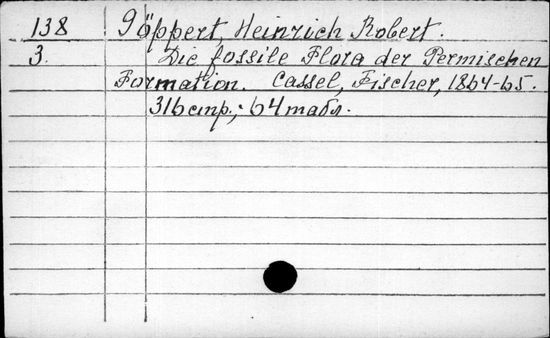 138 Göppert, Heinrich Robert.
3. Die fossile Flora der Permischen
Formation. Cassel, Fischer, 1864-65.
316 стр.; 64 табл.